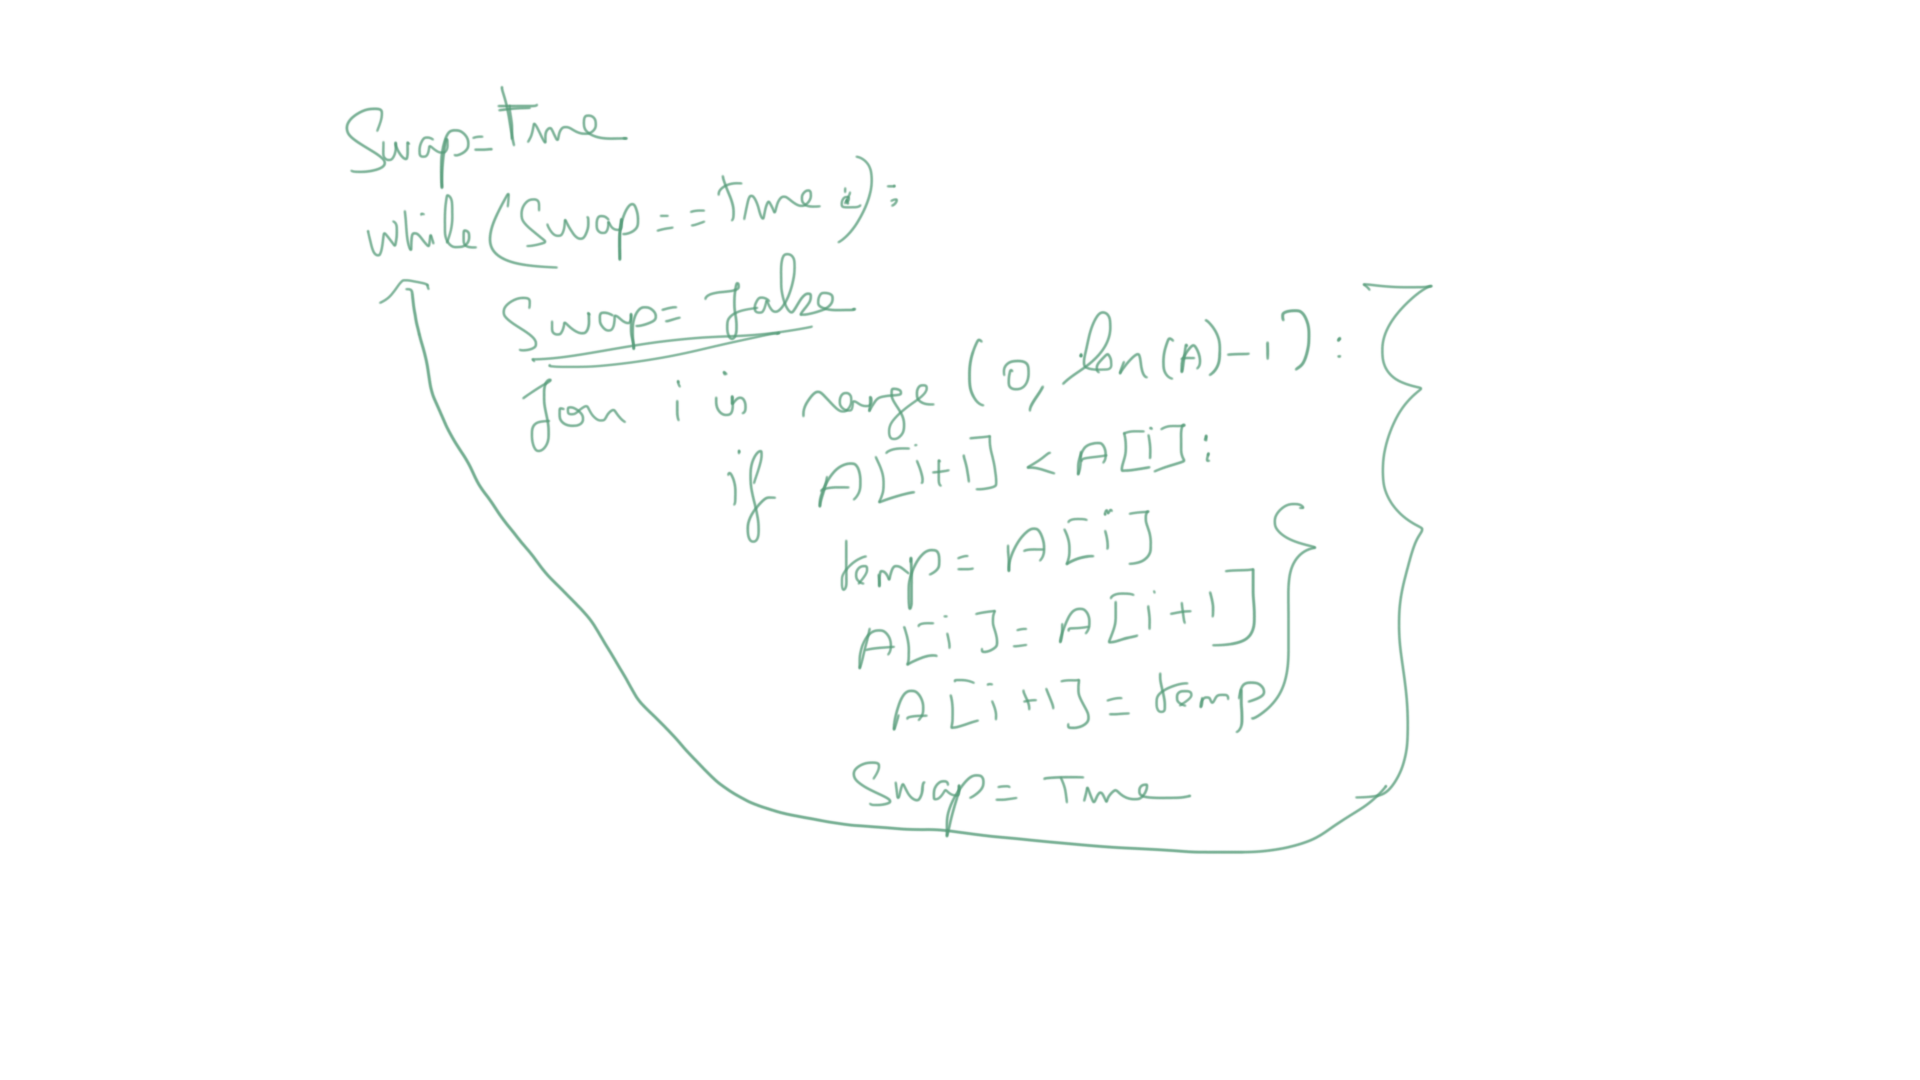 Swap=True
while(Swap==True):
Swap=False
for i in range (0, len(A)-1):
if A[i+1] < A[i]:
temp= A[i]
A[i]= A[i+1]
A[i+1]= temp
Swap= True